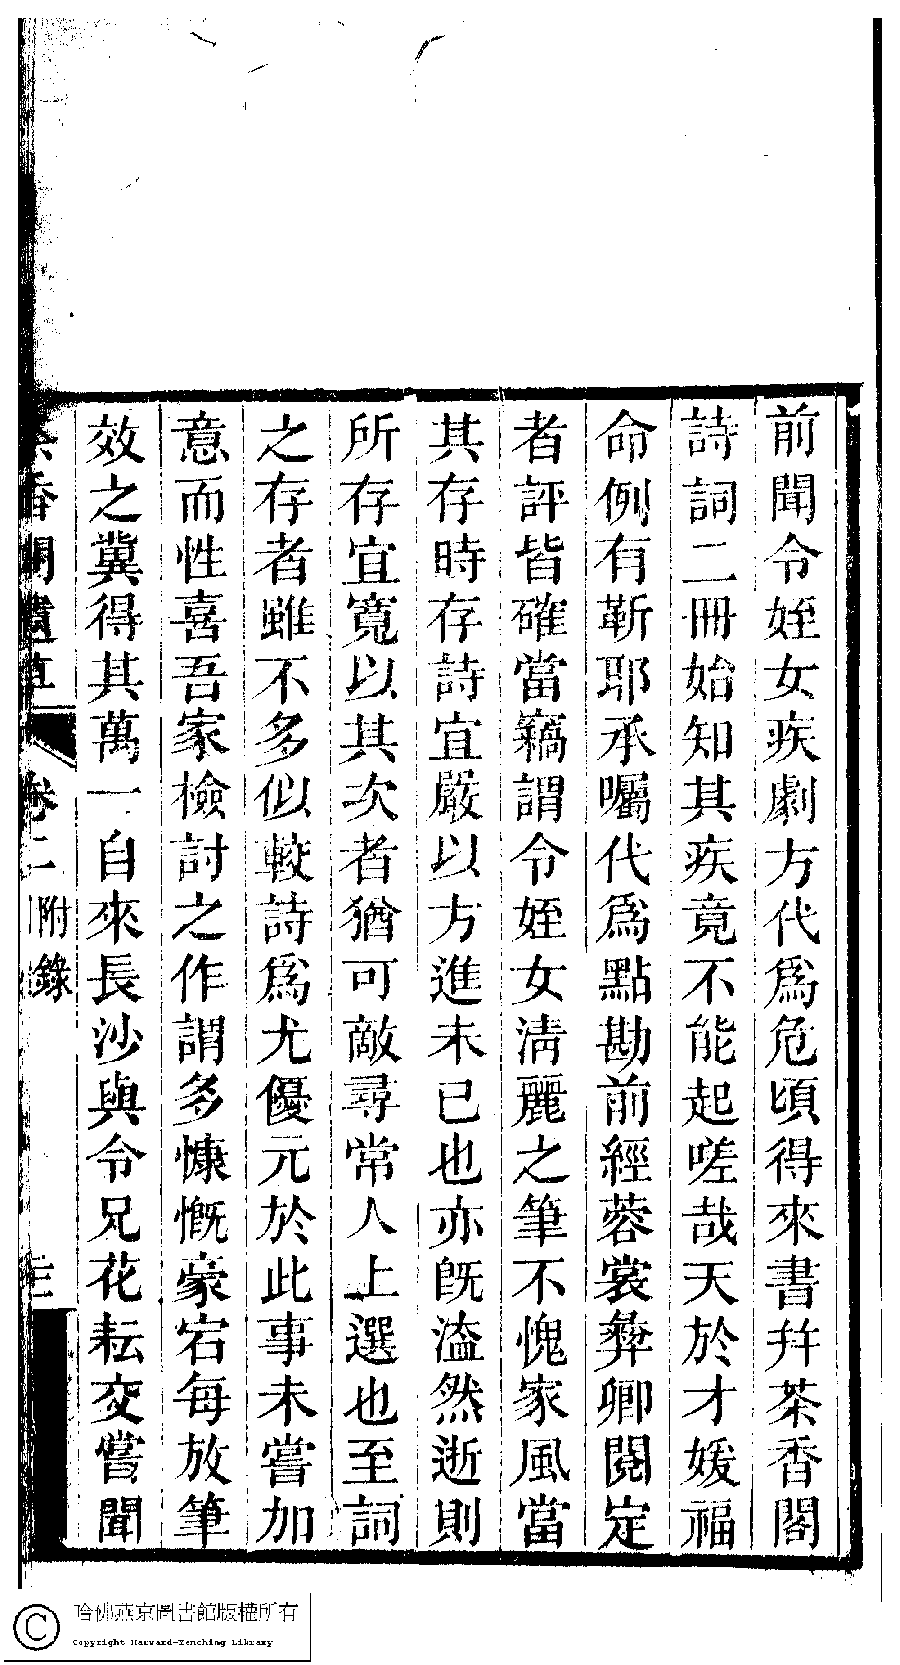 前聞令姪女疾劇方代爲危頃得來書幷茶香閣
詩詞二冊始知其疾竟不能起嗟哉天於才媛福
命例有靳耶承囑代爲點勘前經蓉裳彜卿閱定
者評皆確當竊謂令姪女淸麗之筆不愧家風當
其存時存詩宜嚴以方進未已也亦旣溘然逝則
所存宜寬以其次者猶可敵尋常人上選也至詞
之存者雖不多似較詩爲尤優元於此事未嘗加
意而性喜吾家檢討之作謂多慷慨豪宕每放筆
效之冀得其萬一自來長沙與令兄花耘交嘗聞
茶香閣遺草 卷二 附錄
哈佛燕京圖書館版權所有
Copyright Harvard-Yenching Library